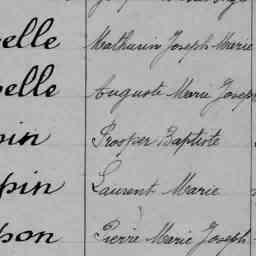 elle Mathurin Joseph Marie
elle Auguste Marie Joseph
pin Prosper Baptiste
pin Laurent Marie
pon Pierre Marie Joseph